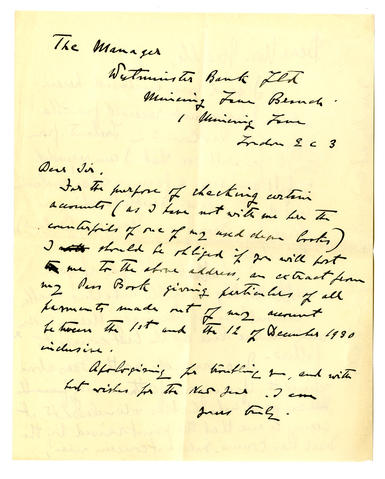 The Manager
Westminster Bank Ltd
Mincing Lane Branch.
1 Mincing Lane
London E C 3
Dear Sir.
For the purpose of checking certain
accounts (as I have not with me here the
counterfoils of one of my used cheque books)
I should be obliged if you will post
to me to the above address, an extract from
my Pass Book giving particulars of all
payments made out of my account
between the 1st and the 12 of December 1930
inclusive.
Apologising for troubling you, and with
best wishes for the New Year. I am
yours truly.